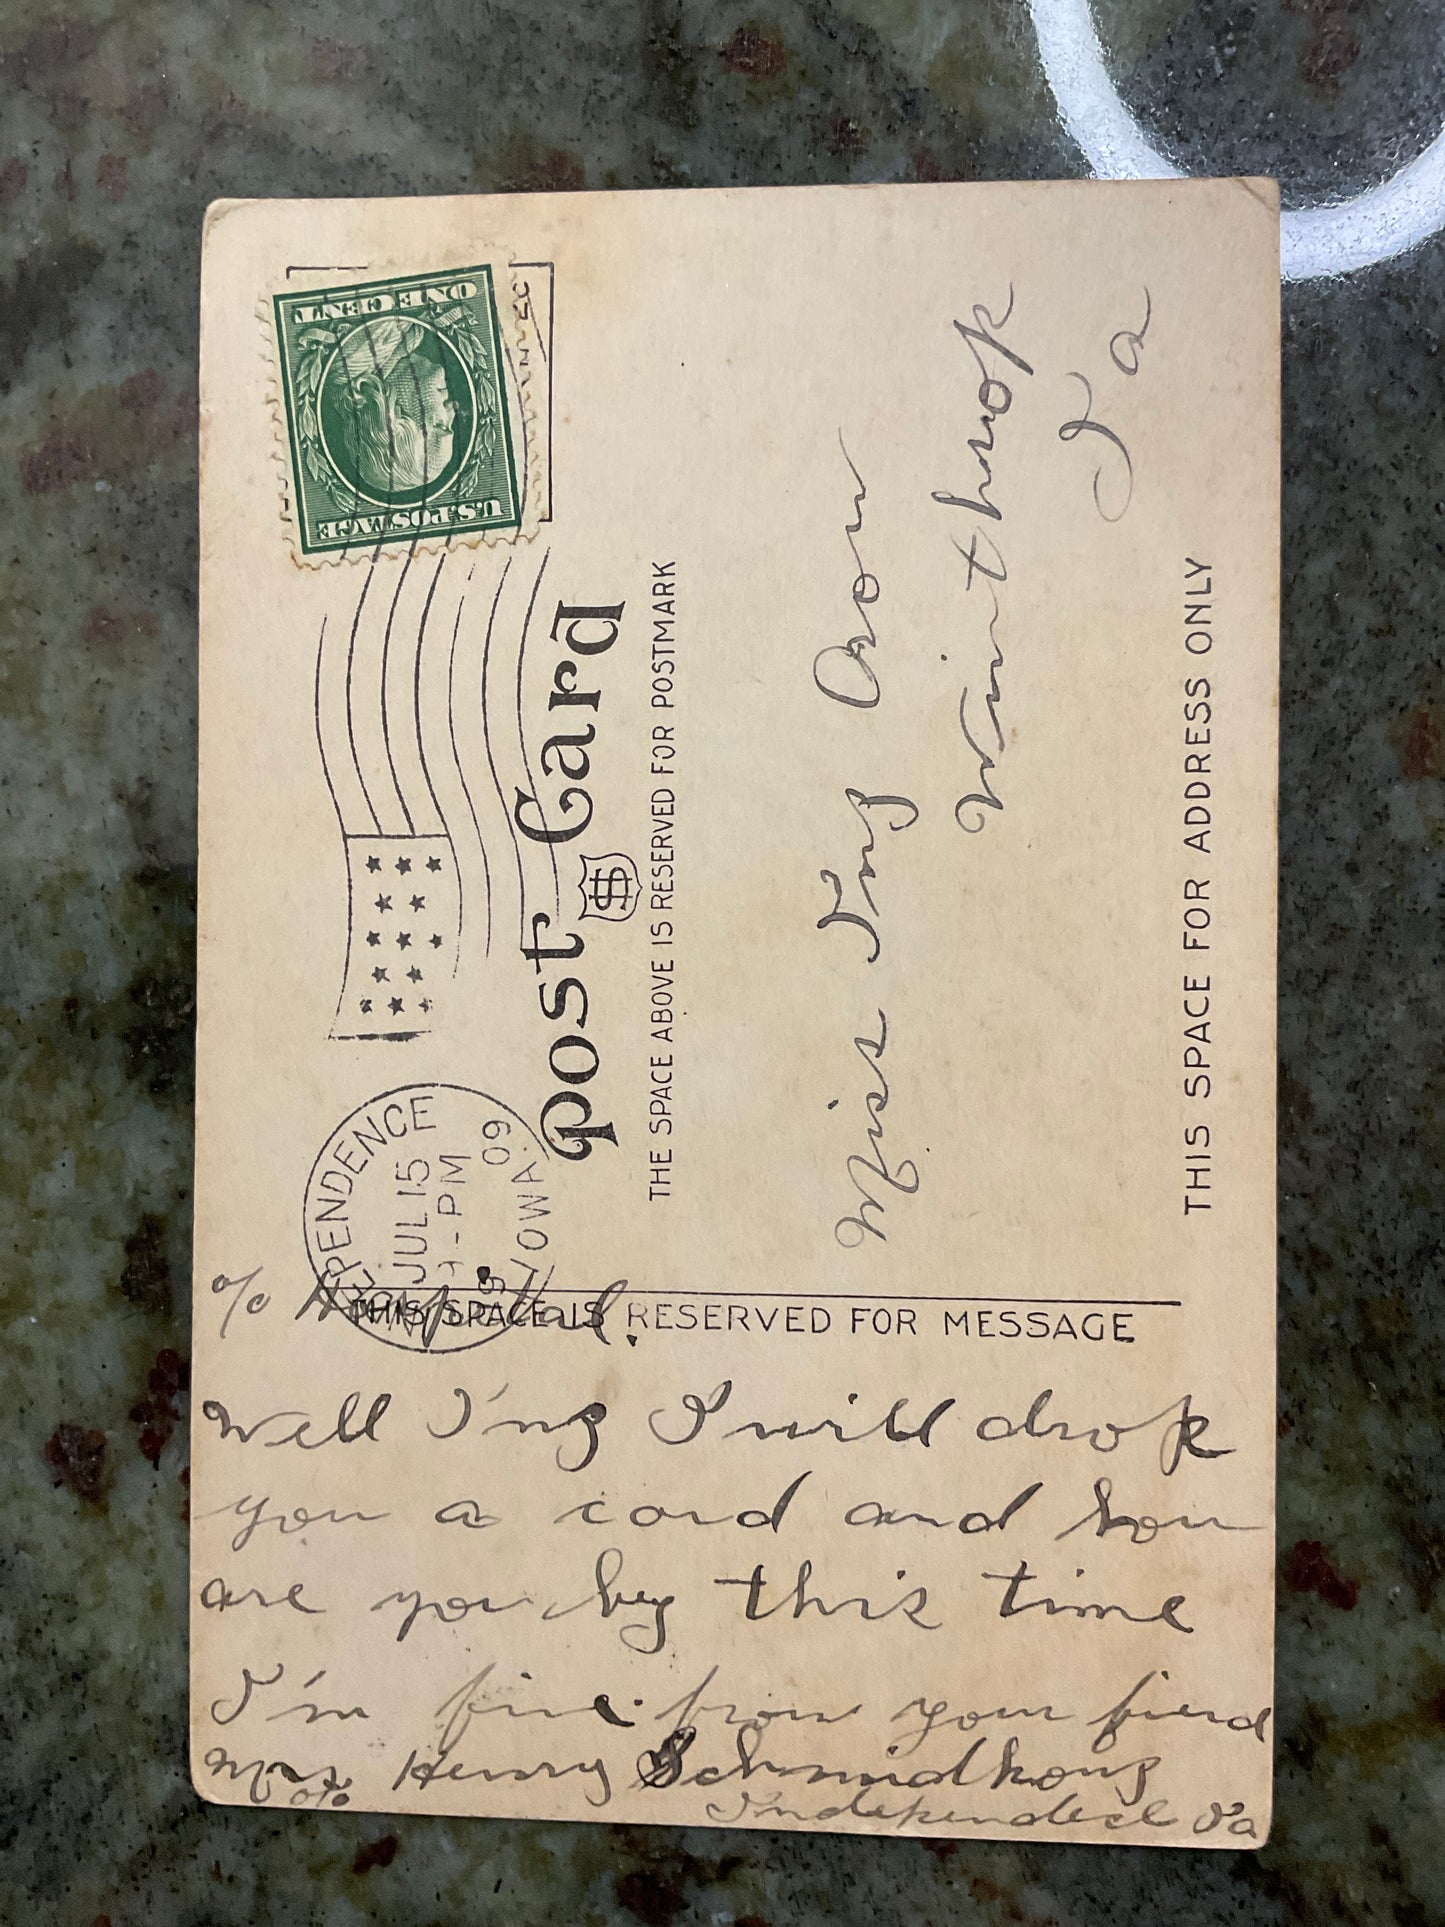 ONE CENT
U.S.POSTAGE
PENDENCE
JUL 15
- PM
09
IOWA.
Post Card
THE SPACE ABOVE IS RESERVED FOR POSTMARK
Miss Ing
Winthrop
Ia
THIS SPACE FOR ADDRESS ONLY
THIS SPACE IS RESERVED FOR MESSAGE
c/o
Well Ing I will drop
you a card and how
are you by this time
I'm fine from your friend
Mrs Henry
Ia